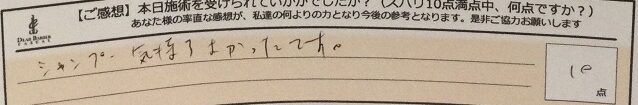 【ご感想】本日施術を受けられていかがでしたか？（ズバリ10点満点中、何点ですか？）
あなた様の率直な感想が、私達の何よりの力となり今後の参考となります。是非ご協力お願いします
DEAR BARBER
シャンプー気持ちよかったです。
10
点